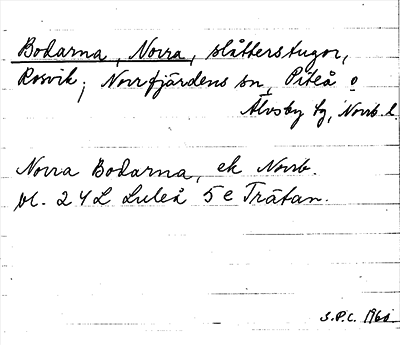 Bodarna, Norra, slåtterstugor,
Rosvik; Norrfjärdens sn, Piteå o
Älvsby tg, Norrb. l.
Norra Bodarna, ek Norrb.
bl. 24 L Luleå 5 e Trätan.
S.P.C. 1960